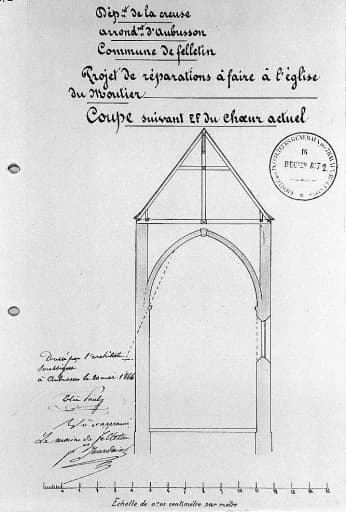 Dép.nt de la creuse
arrond.nt d'Aubusson
Commune de felletin
Projet de réparations à faire à l'église
du Moutier
Coupe suivant EF du Chœur actuel
16
Dressé par l'architecte
Soussigné
à Aubusson le 20 mai
Vu et approuvé
Le maire de felletin
Echelle de 0=01 centimètre par mètre